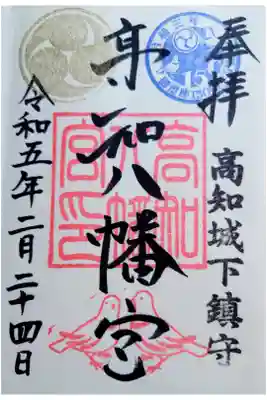 奉拝
高知城下鎮守
高知八幡宮
高知
八幡
宮印
令和五年二月二十四日